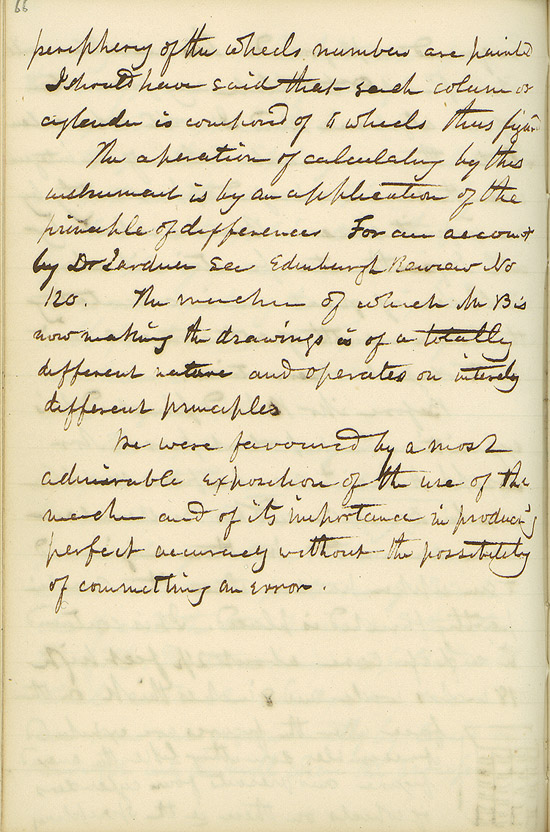 66
periphery of the wheels numbers are painted
I should have said that each column or
cylender is composed of 5 wheels thus figure
The operation of calculatig by this
instrument is by an application of the
principle of differences For an account
by Dr Lardner see Edinburgh Review No
120. The machine of which Mr B is
now making the drawings is of a totally
different nature and operates on interely
different principles
We were favoured by a most
admirable exposition of the use of the
machine and of its importance in producing
perfect accuracy without the possibility
of committing an error.